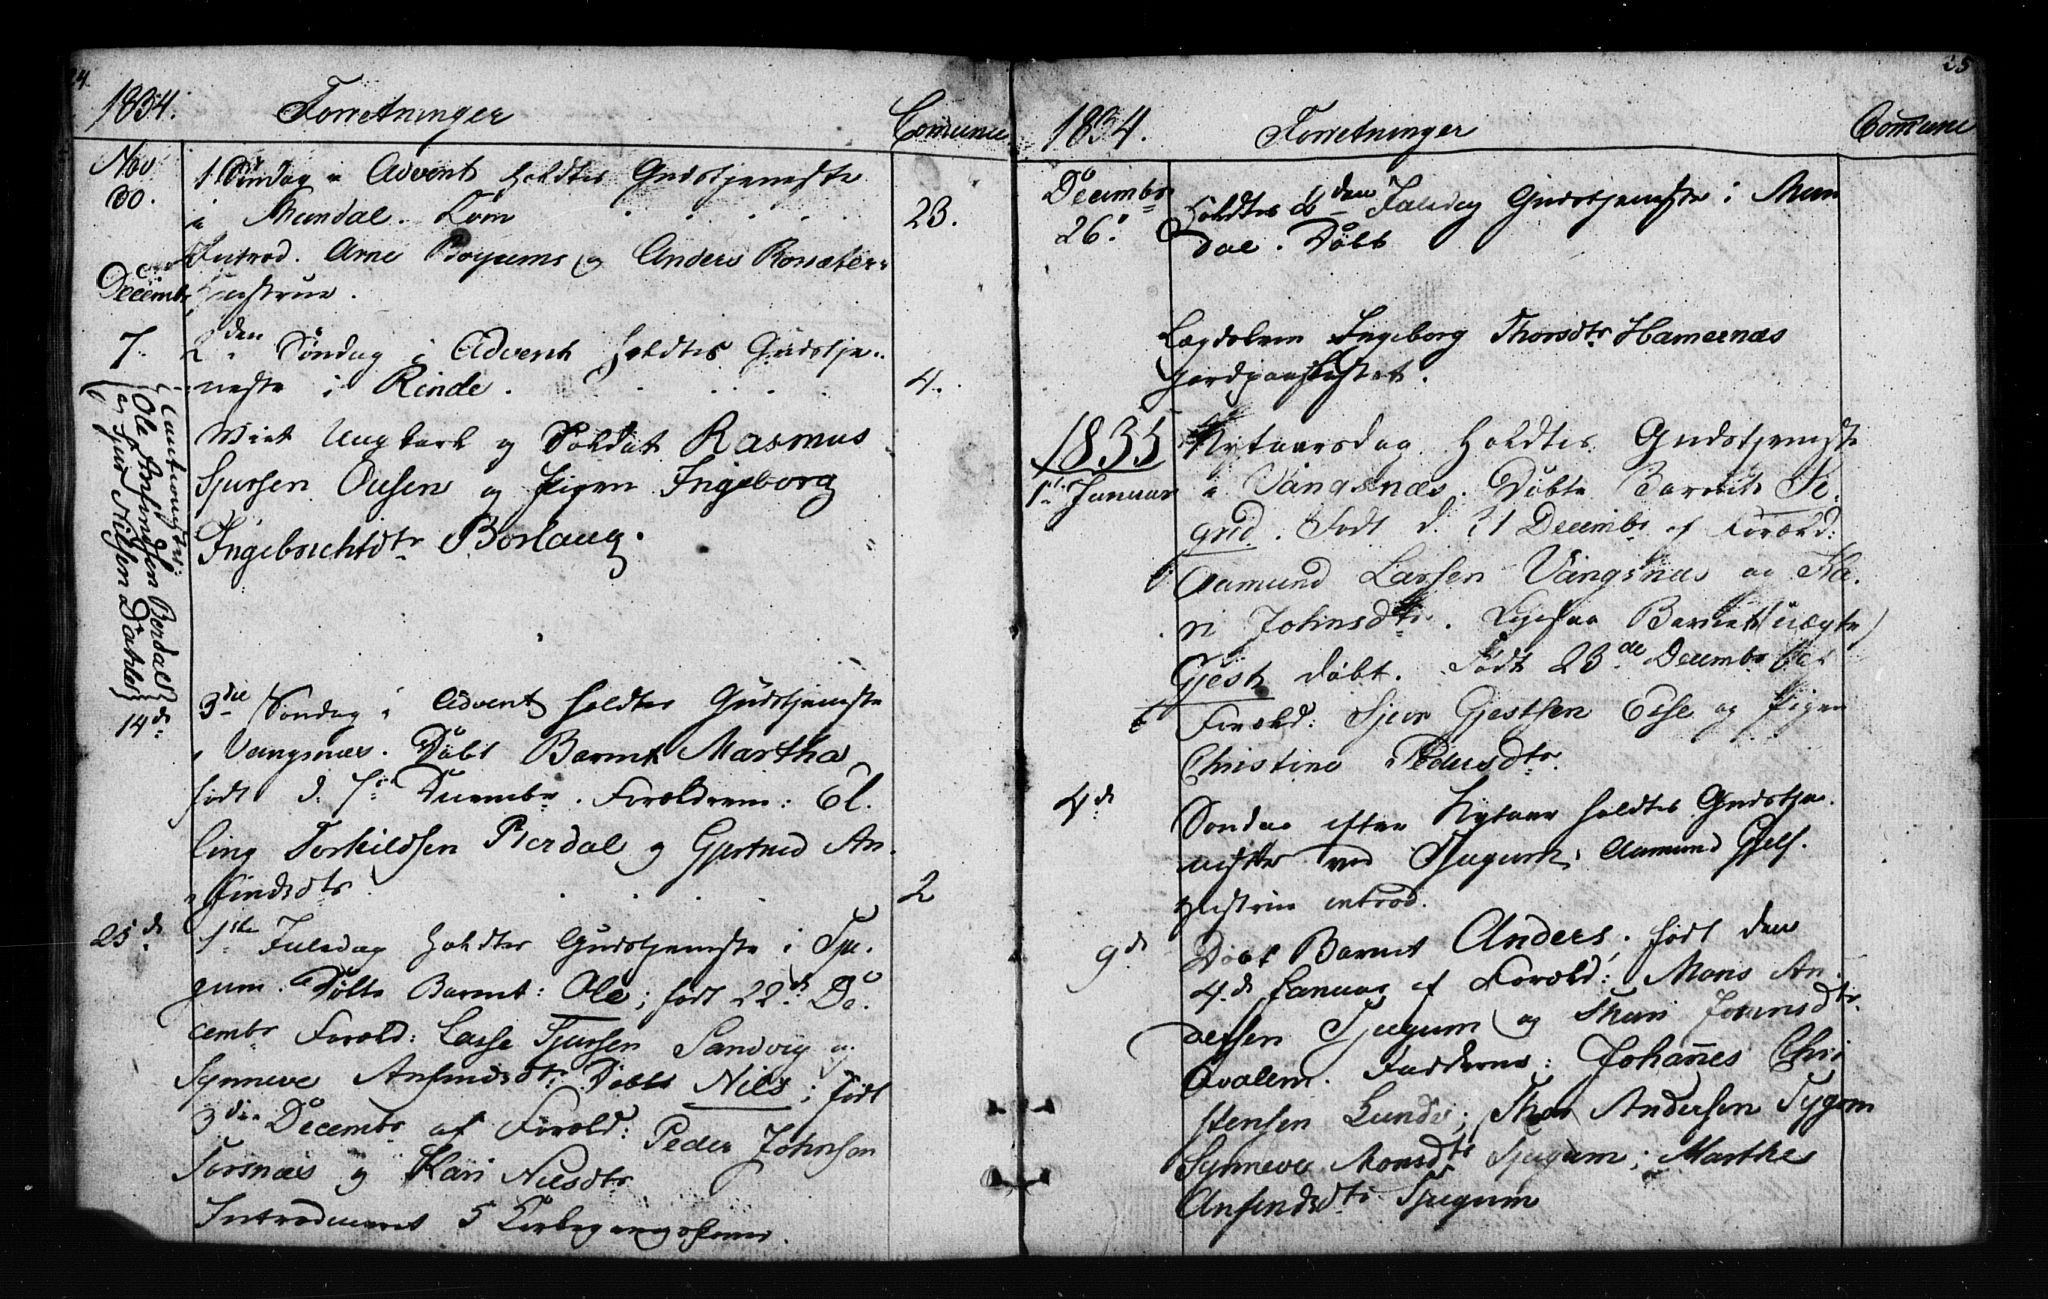 1834. Forretninger Comunic
Nov 30. 1 Søndag i Advent holdtes Gudstjeneste
i Mundal. Kom 23.
Introd. Arne Bøyums og Anders Rorsæters
Hustruer.
Decembr 7. 2den Søndag i Advent holdtes Gudstje-
neste i Rinde. 4.
Viet Ungkarl og Soldat Rasmus
Sjursen Ousen og Pigen Ingeborg
Ingebrichtdtr Borlaug.
Cautionister:
Ole Anfindsen Berdal
og Sjur Nilsen Dahle
14de 3die Søndag i Advent holdtes Gudstjeneste
i Vangsnæs. Døbt Barnet Martha
født d. 7de Decembr. Forældrene: El-
ling Torkildsen Pierdal og Gjertrud An-
findsdtr. 2
25de 1ste Juledag holdtes Gudstjeneste i Tju-
gum. Døbte Barnet: Ole; født 22de De-
cembr Foræld: Lasse Sjursen Sandvig og
Synneve Anfindsdtr Døbt Nils; født
3die Decembr af Foræld: Peder Johnsen
Torsnæs og Kari Nilsdtr
Introduceret 5 Kirkegangskoner.
1834. Forretninger Comunic
Decembr 26. Holdtes 2den Juledag Gudstjeneste i Mun
dal. Døbt
Lægdslem Ingeborg Thorsdtr Hamernæs
jordpaakastet.
1835
1ste Januar Nytaarsdag holdtes Gudstjeneste
i Vangsnæs. Døbte Barnet Si-
grid. Født d. 21 Decembr af Foræld:
Aamund Larsen Vangsnæs og Ka-
ri Johnsdtr. Ligesaa Barnet (uægte)
Gjest døbt. Født 23de Decembr af
Foræld: Sjur Gjestsen Eise og Pigen
Christine Pedersdtr.
4de Søndag efter Nytaar holdtes Gudstje-
neste ved Tjugum. Aamund
Hustrue introd.
9de Døbt Barnet Anders, født den
4de Januar af Foræld: Mons An-
dersen Tjugum og Mari Johnsdtr
Qvalem. Fadderne: Johannes Chri
stensen Lunde; Thor Andersen Tygum
Synneve Monsdtr Tjugum; Marthe
Anfindsdtr Tjugum